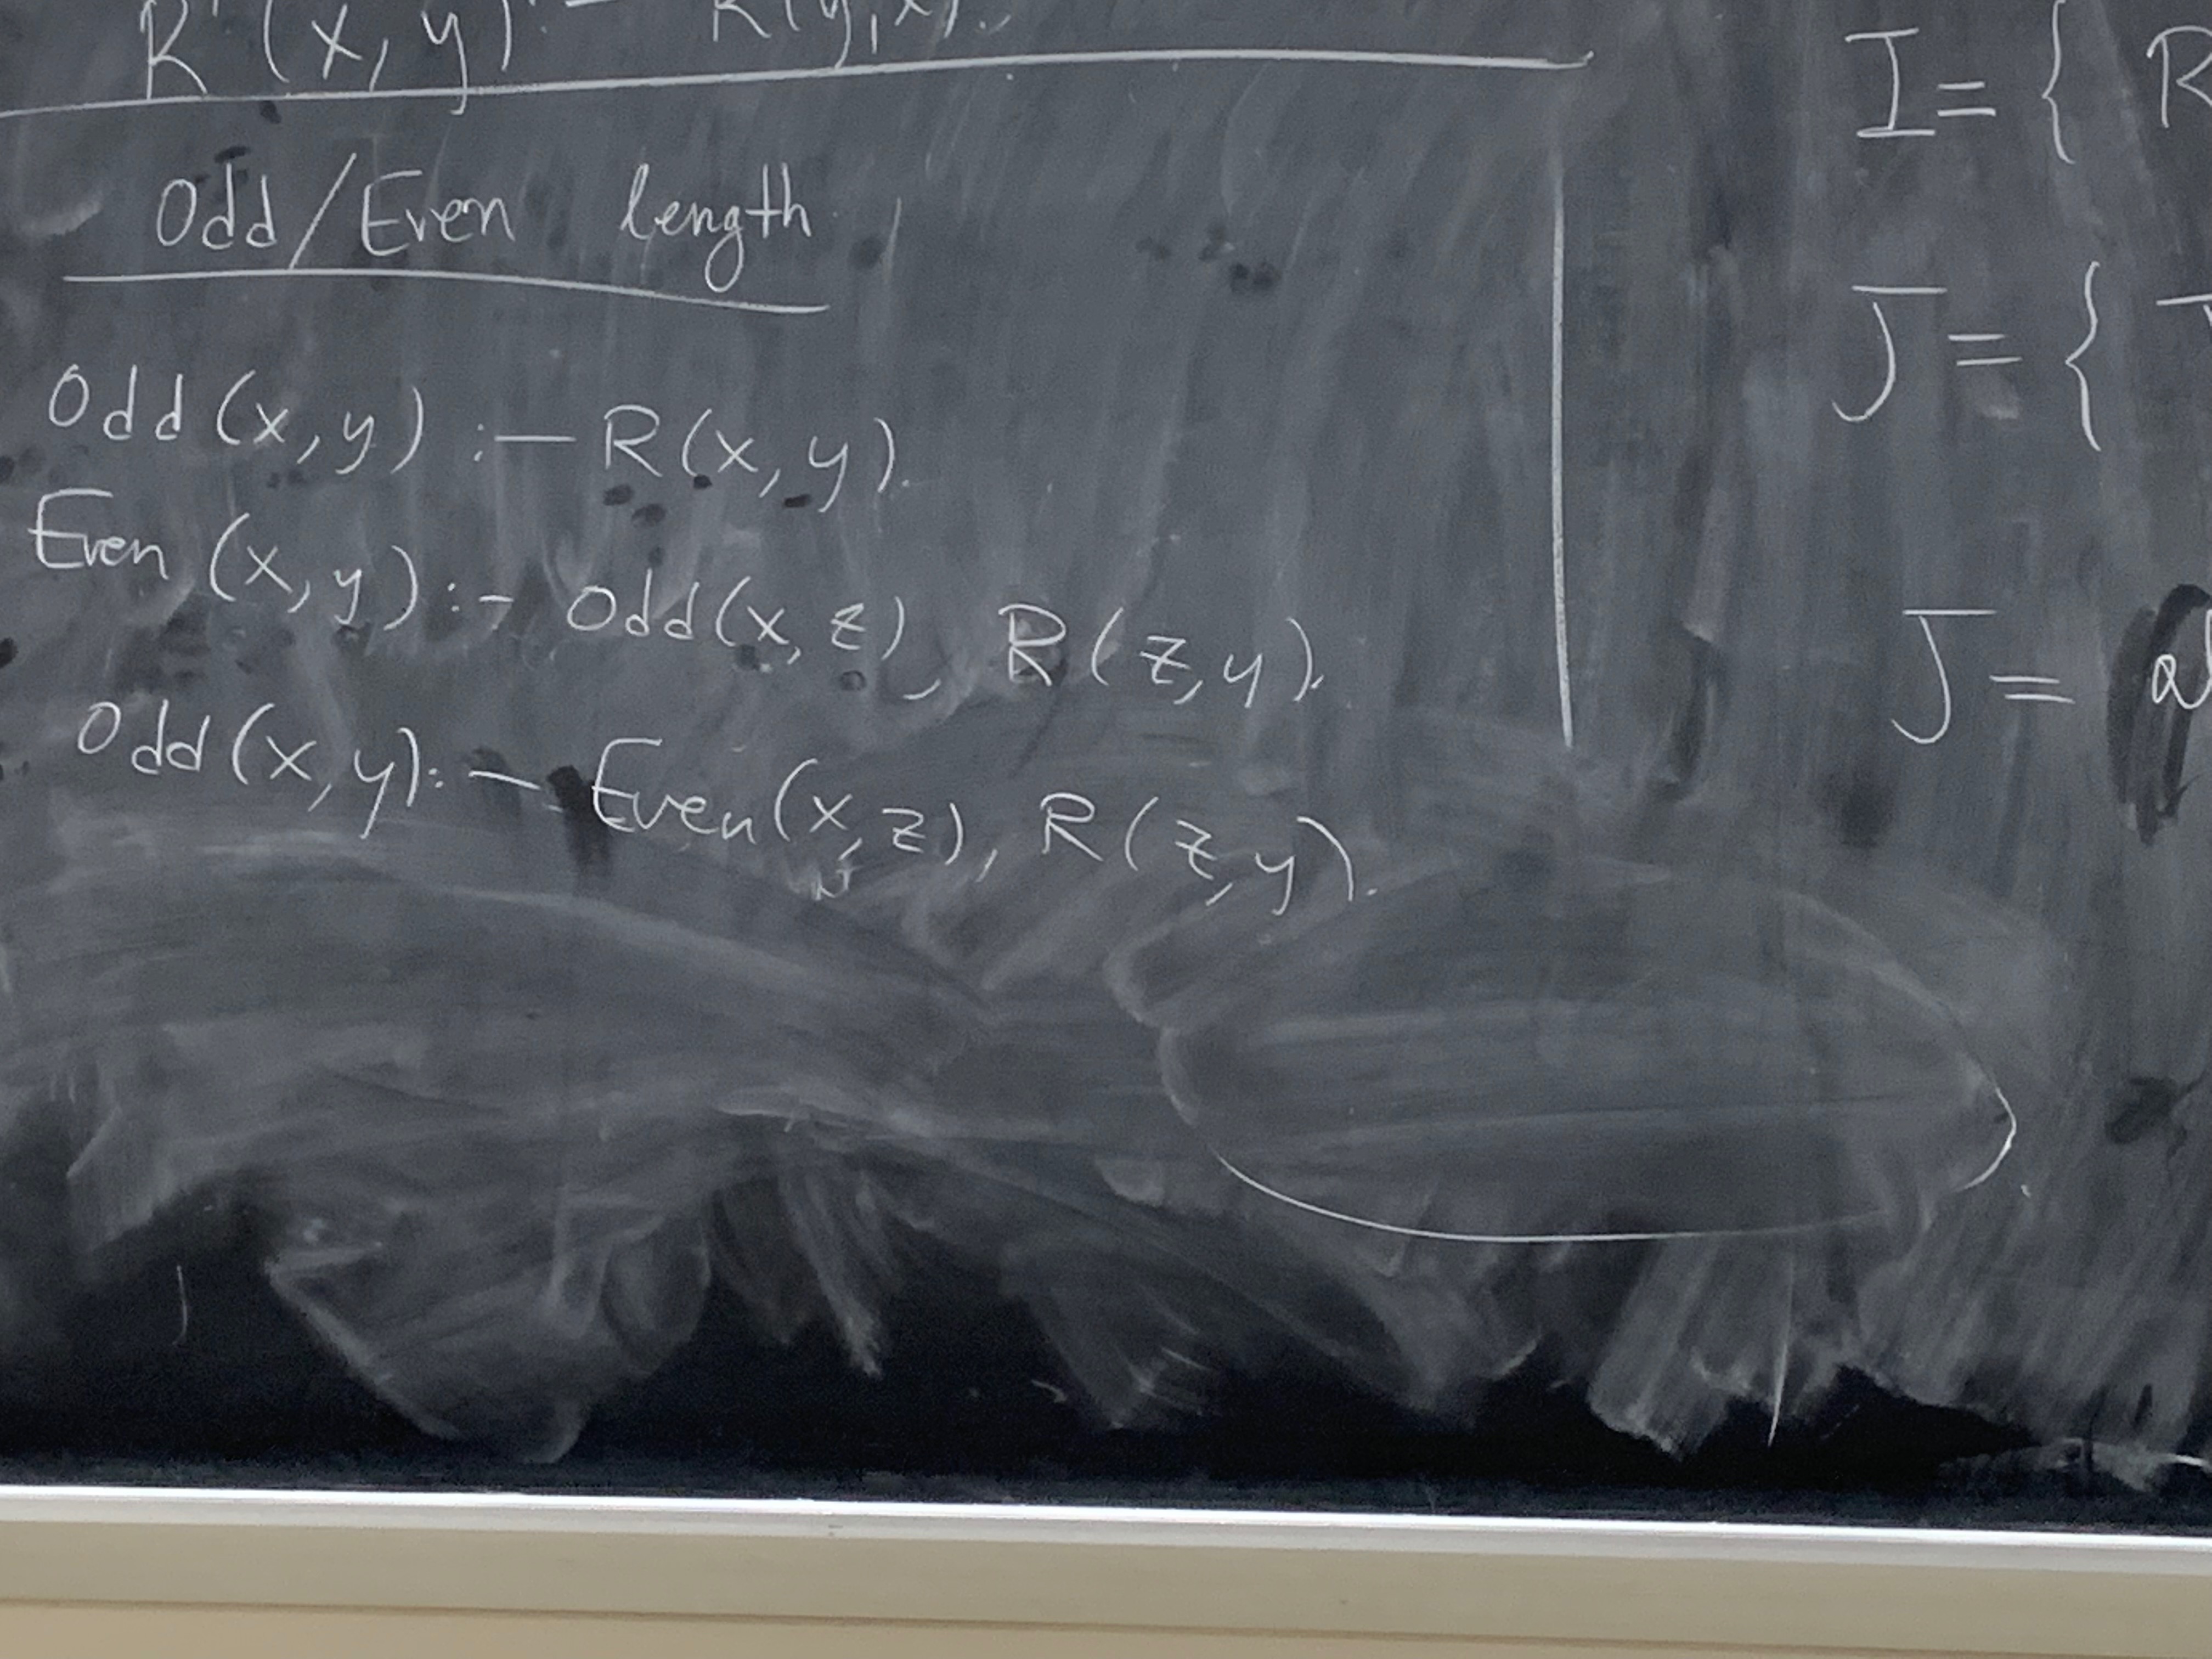 R'(x,y) :- R(y,x).
Odd/Even length
Odd(x,y) :- R(x,y).
Even(x,y) :- Odd(x,z), R(z,y).
Odd(x,y) :- Even(x,z), R(z,y).
I = { R
J = {
J =